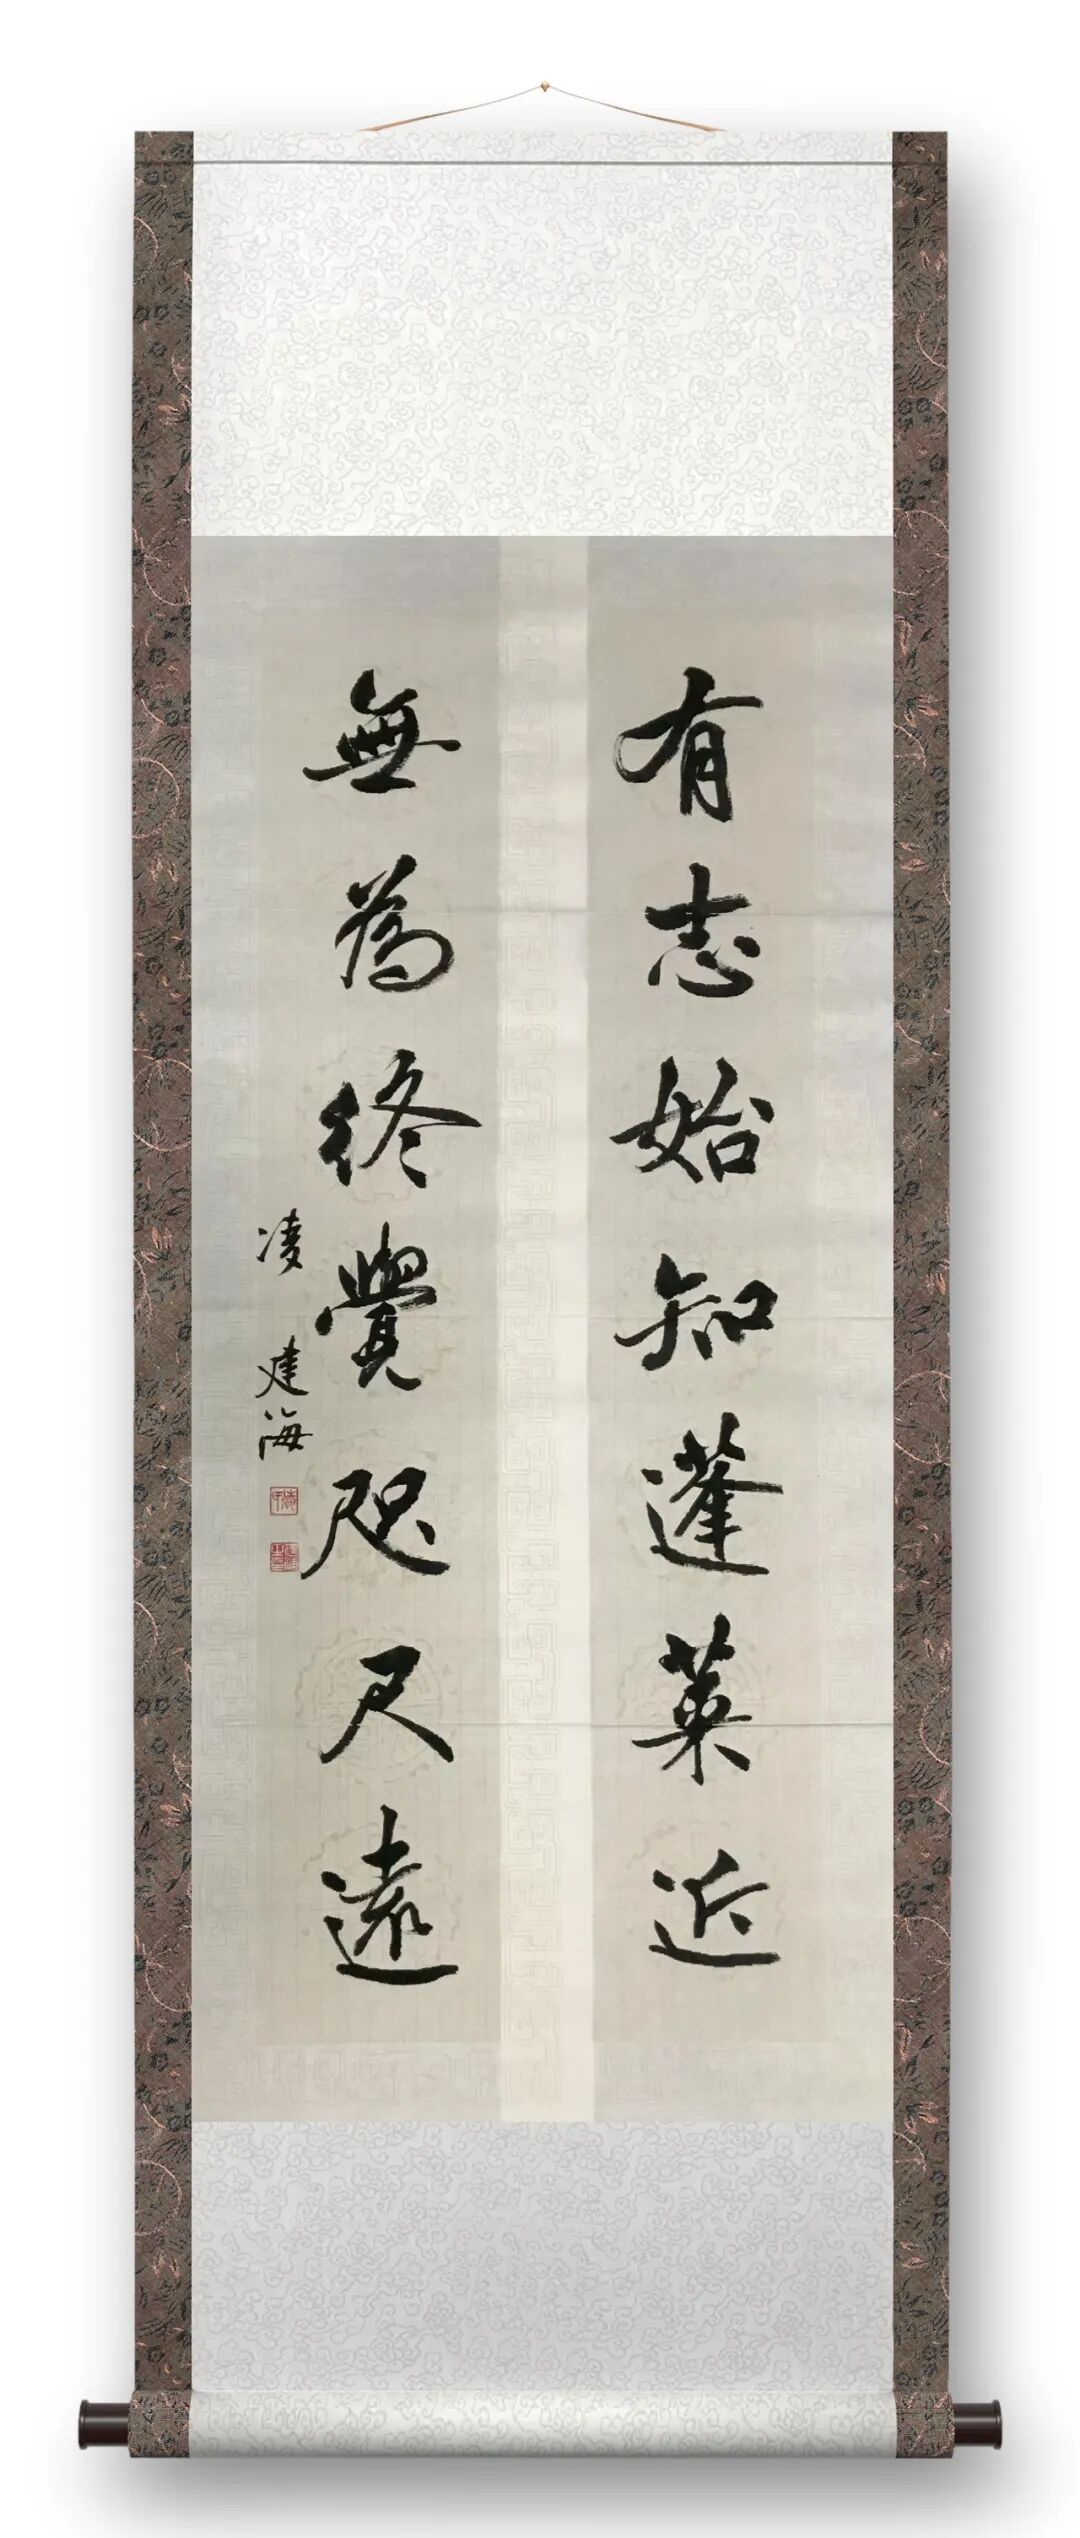 有志始知蓬萊近
無為終覺咫尺遠
凌建海